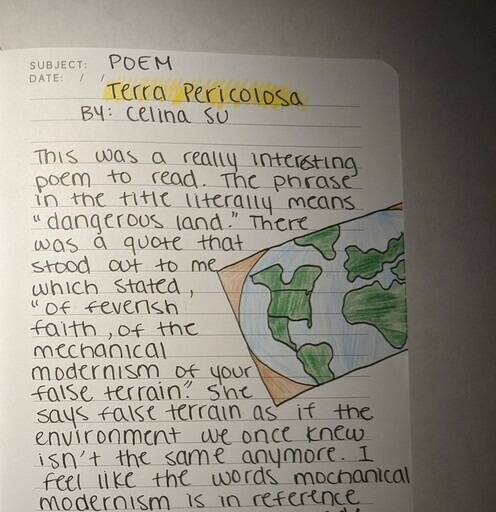 SUBJECT: POEM
DATE: / /
Terra Pericolosa
BY: Celina Su
This was a really interesting
poem to read. The phrase
in the title literally means
"dangerous land." There
was a quote that
stood out to me
which stated,
"of feverish
faith, of the
mechanical
modernism of your
false terrain." She
says false terrain as if the
environment we once knew
isn't the same anymore. I
feel like the words mochanical
modernism is in reference